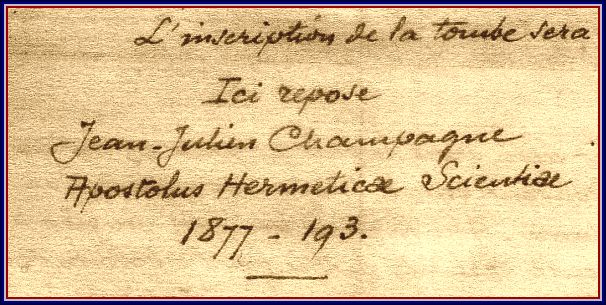 L'inscription de la tombe sera
Ici repose
Jean-Julien Champagne
Apostolus Hermeticæ Scientiæ
1877 - 193.